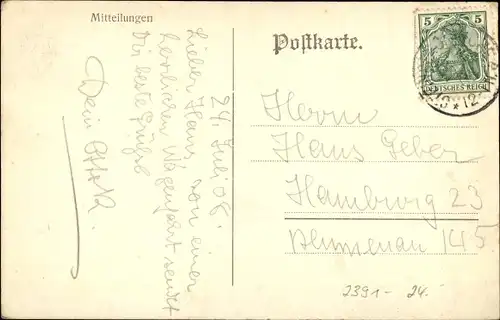 Mitteilungen
Postkarte.
5 5
DEUTSCHES REICH
12
24. Juli 08.
Lieber Hans, von einer
herrlichen Wagenfahrt sendet
Dir beste Grüße
Dein
Herrn
Hans Geber
Hamburg 23
Blumenau 145
2391- 24.-